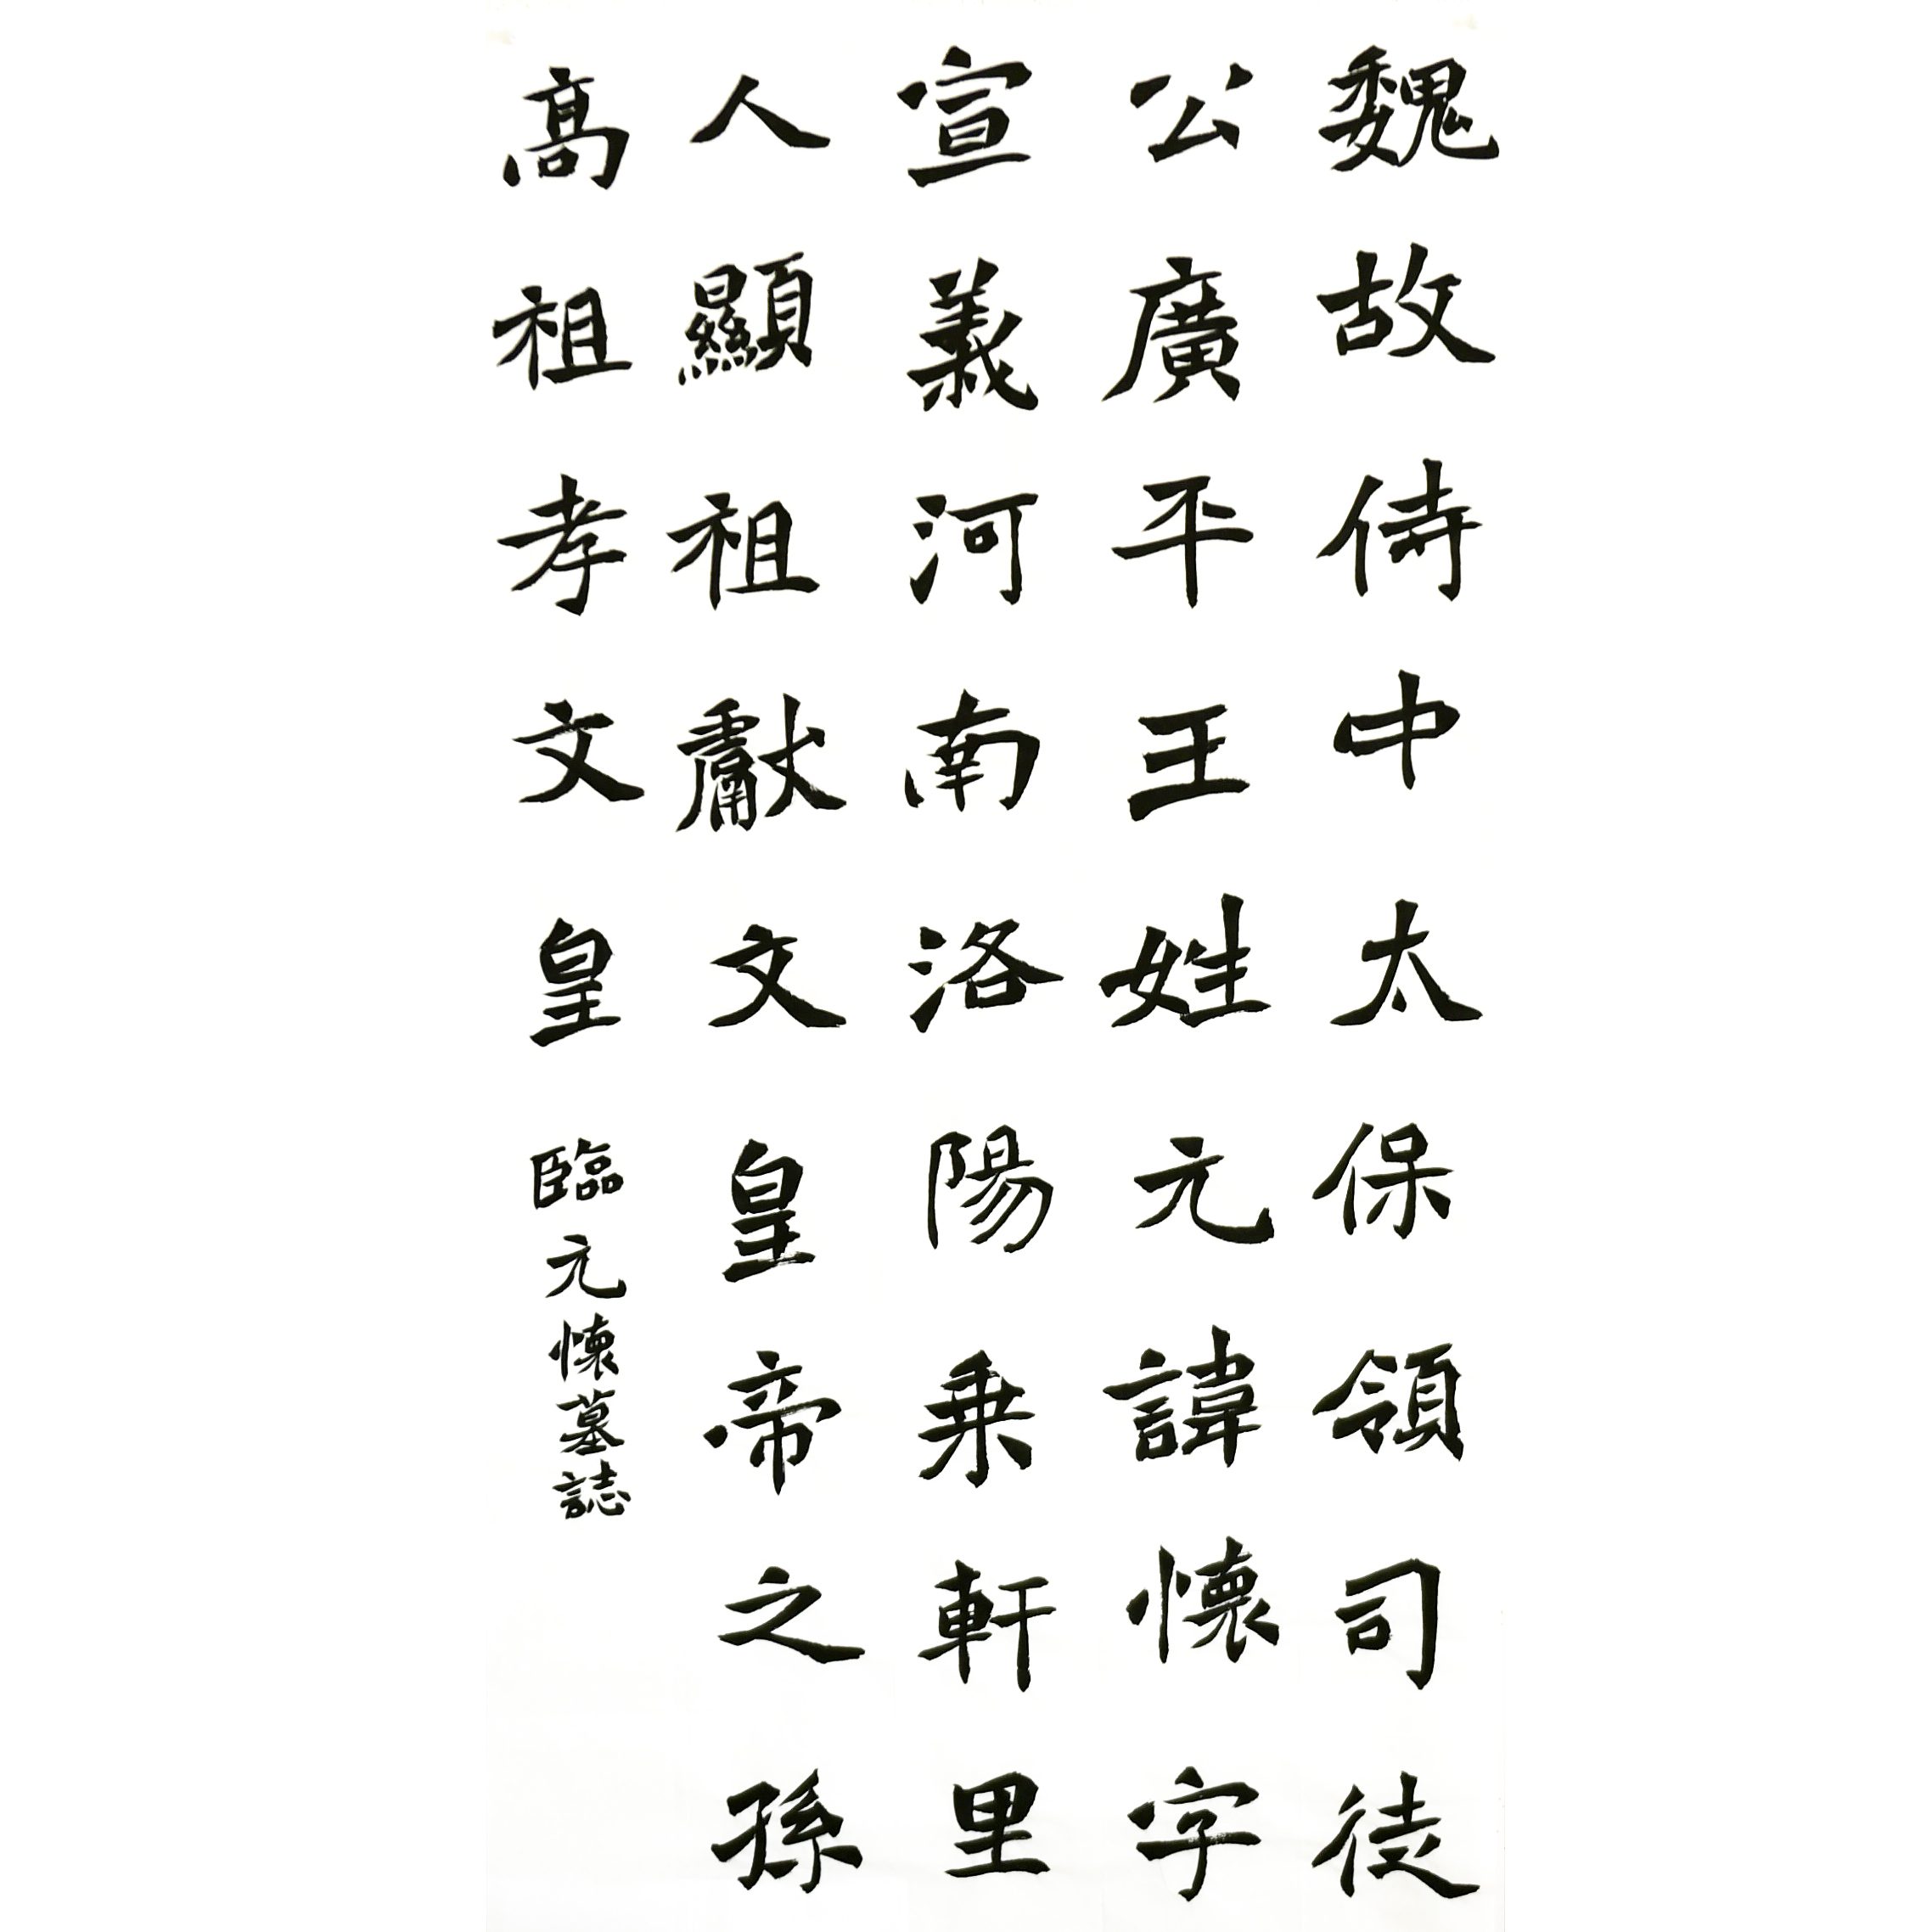 魏故侍中太保領司徒
公廣平王姓元諱懷字
宣義河南洛陽乗軒里
人顯祖獻文皇帝之孫
高祖孝文皇
臨元懷墓誌